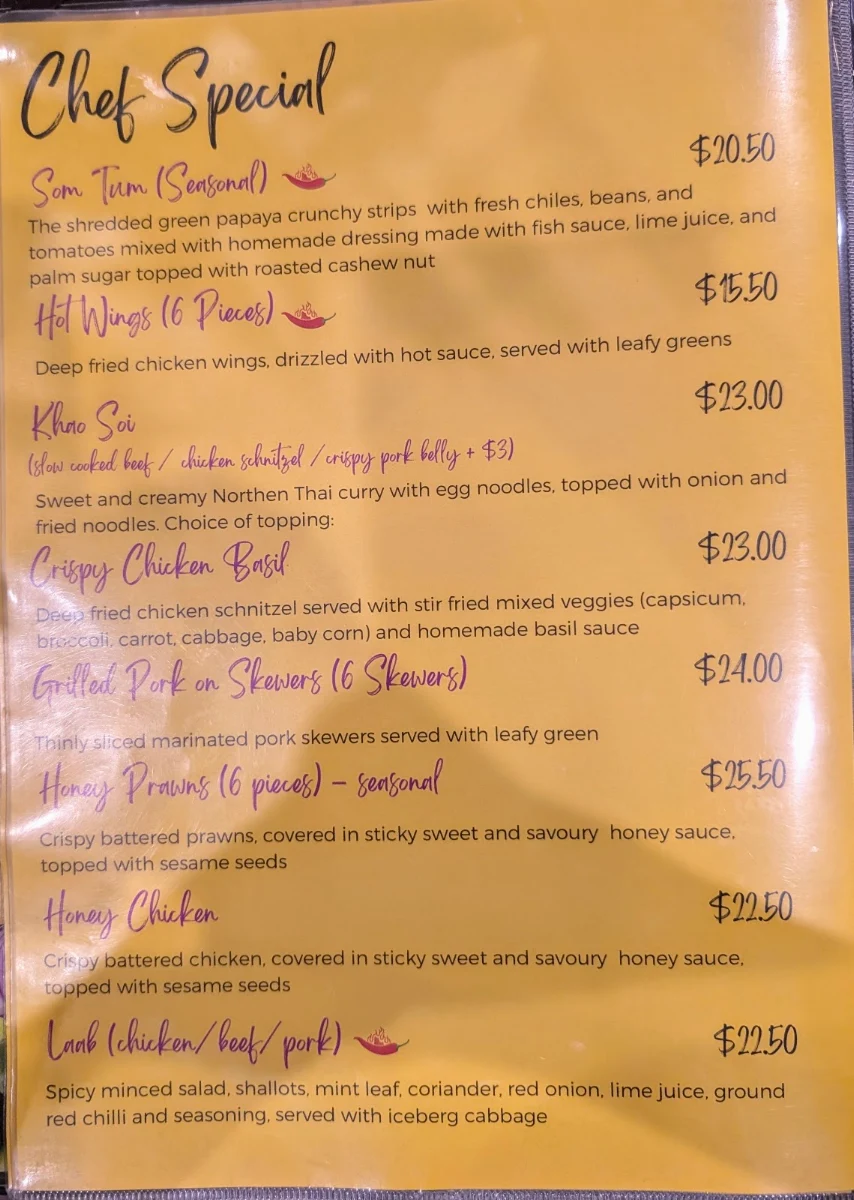 Chef Special
Som Tum (Seasonal)
$20.50
The shredded green papaya crunchy strips with fresh chiles, beans, and
tomatoes mixed with homemade dressing made with fish sauce, lime juice, and
palm sugar topped with roasted cashew nut
Hot Wings (6 Pieces)
$15.50
Deep fried chicken wings, drizzled with hot sauce, served with leafy greens
Khao Soi
$23.00
(slow cooked beef / chicken schnitzel / crispy pork belly + $3)
Sweet and creamy Northen Thai curry with egg noodles, topped with onion and
fried noodles. Choice of topping:
Crispy Chicken Basil
$23.00
Deep fried chicken schnitzel served with stir fried mixed veggies (capsicum,
broccoli, carrot, cabbage, baby corn) and homemade basil sauce
Grilled Pork on Skewers (6 Skewers)
$24.00
Thinly sliced marinated pork skewers served with leafy green
Honey Prawns (6 pieces) – seasonal
$25.50
Crispy battered prawns, covered in sticky sweet and savoury honey sauce,
topped with sesame seeds
Honey Chicken
$22.50
Crispy battered chicken, covered in sticky sweet and savoury honey sauce,
topped with sesame seeds
Laab (chicken/beef/pork)
$22.50
Spicy minced salad, shallots, mint leaf, coriander, red onion, lime juice, ground
red chilli and seasoning, served with iceberg cabbage